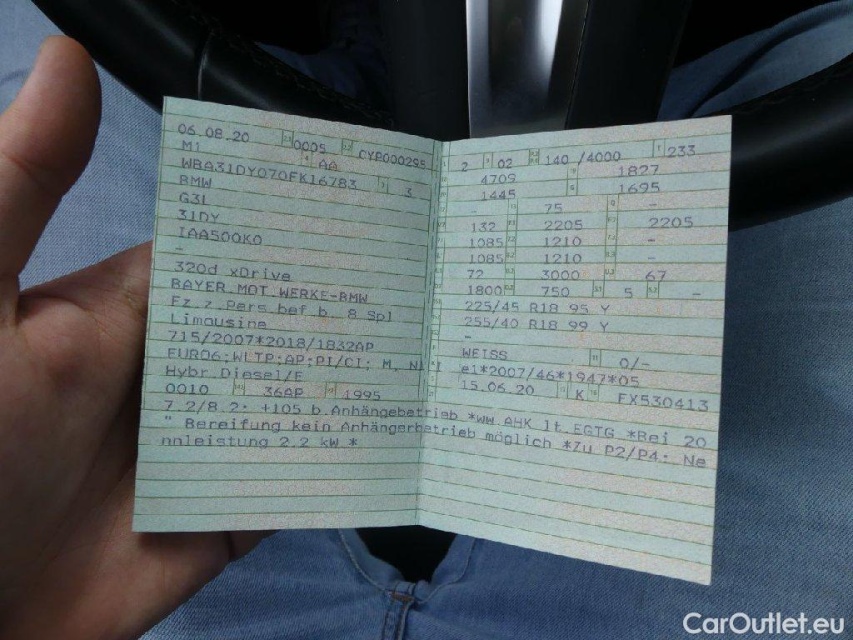 06.08.20 0005 CYP000295
M1 AA
WBA31DY070FK16783 3
BMW
G3L
31DY
IAA500K0
-
320d xDrive
BAYER.MOT.WERKE-BMW
Fz.z.Pers.bef.b. 8 Spl
Limousine
715/2007*2018/1832AP
EURO6;WLTP;AP;PI/CI; M, N1 I
Hybr.Diesel/E
0010 36AP 1995
2 02 140 /4000 233
4709 1827
1445 1695
- 75 -
132 2205 2205
1085 1210 -
1085 1210 -
72 3000 67
1800 750 5 -
225/45 R18 95 Y
255/40 R18 99 Y
-
WEISS 0/-
e1*2007/46*1947*05
15.06.20 K FX530413
7.2/8.2: +105 b.Anhängebetrieb *ww.AHK lt.EGTG *Bei 20
" Bereifung kein Anhängerbetrieb möglich *Zu P2/P4: Ne
nnleistung 2.2 kW *
CarOutlet.eu